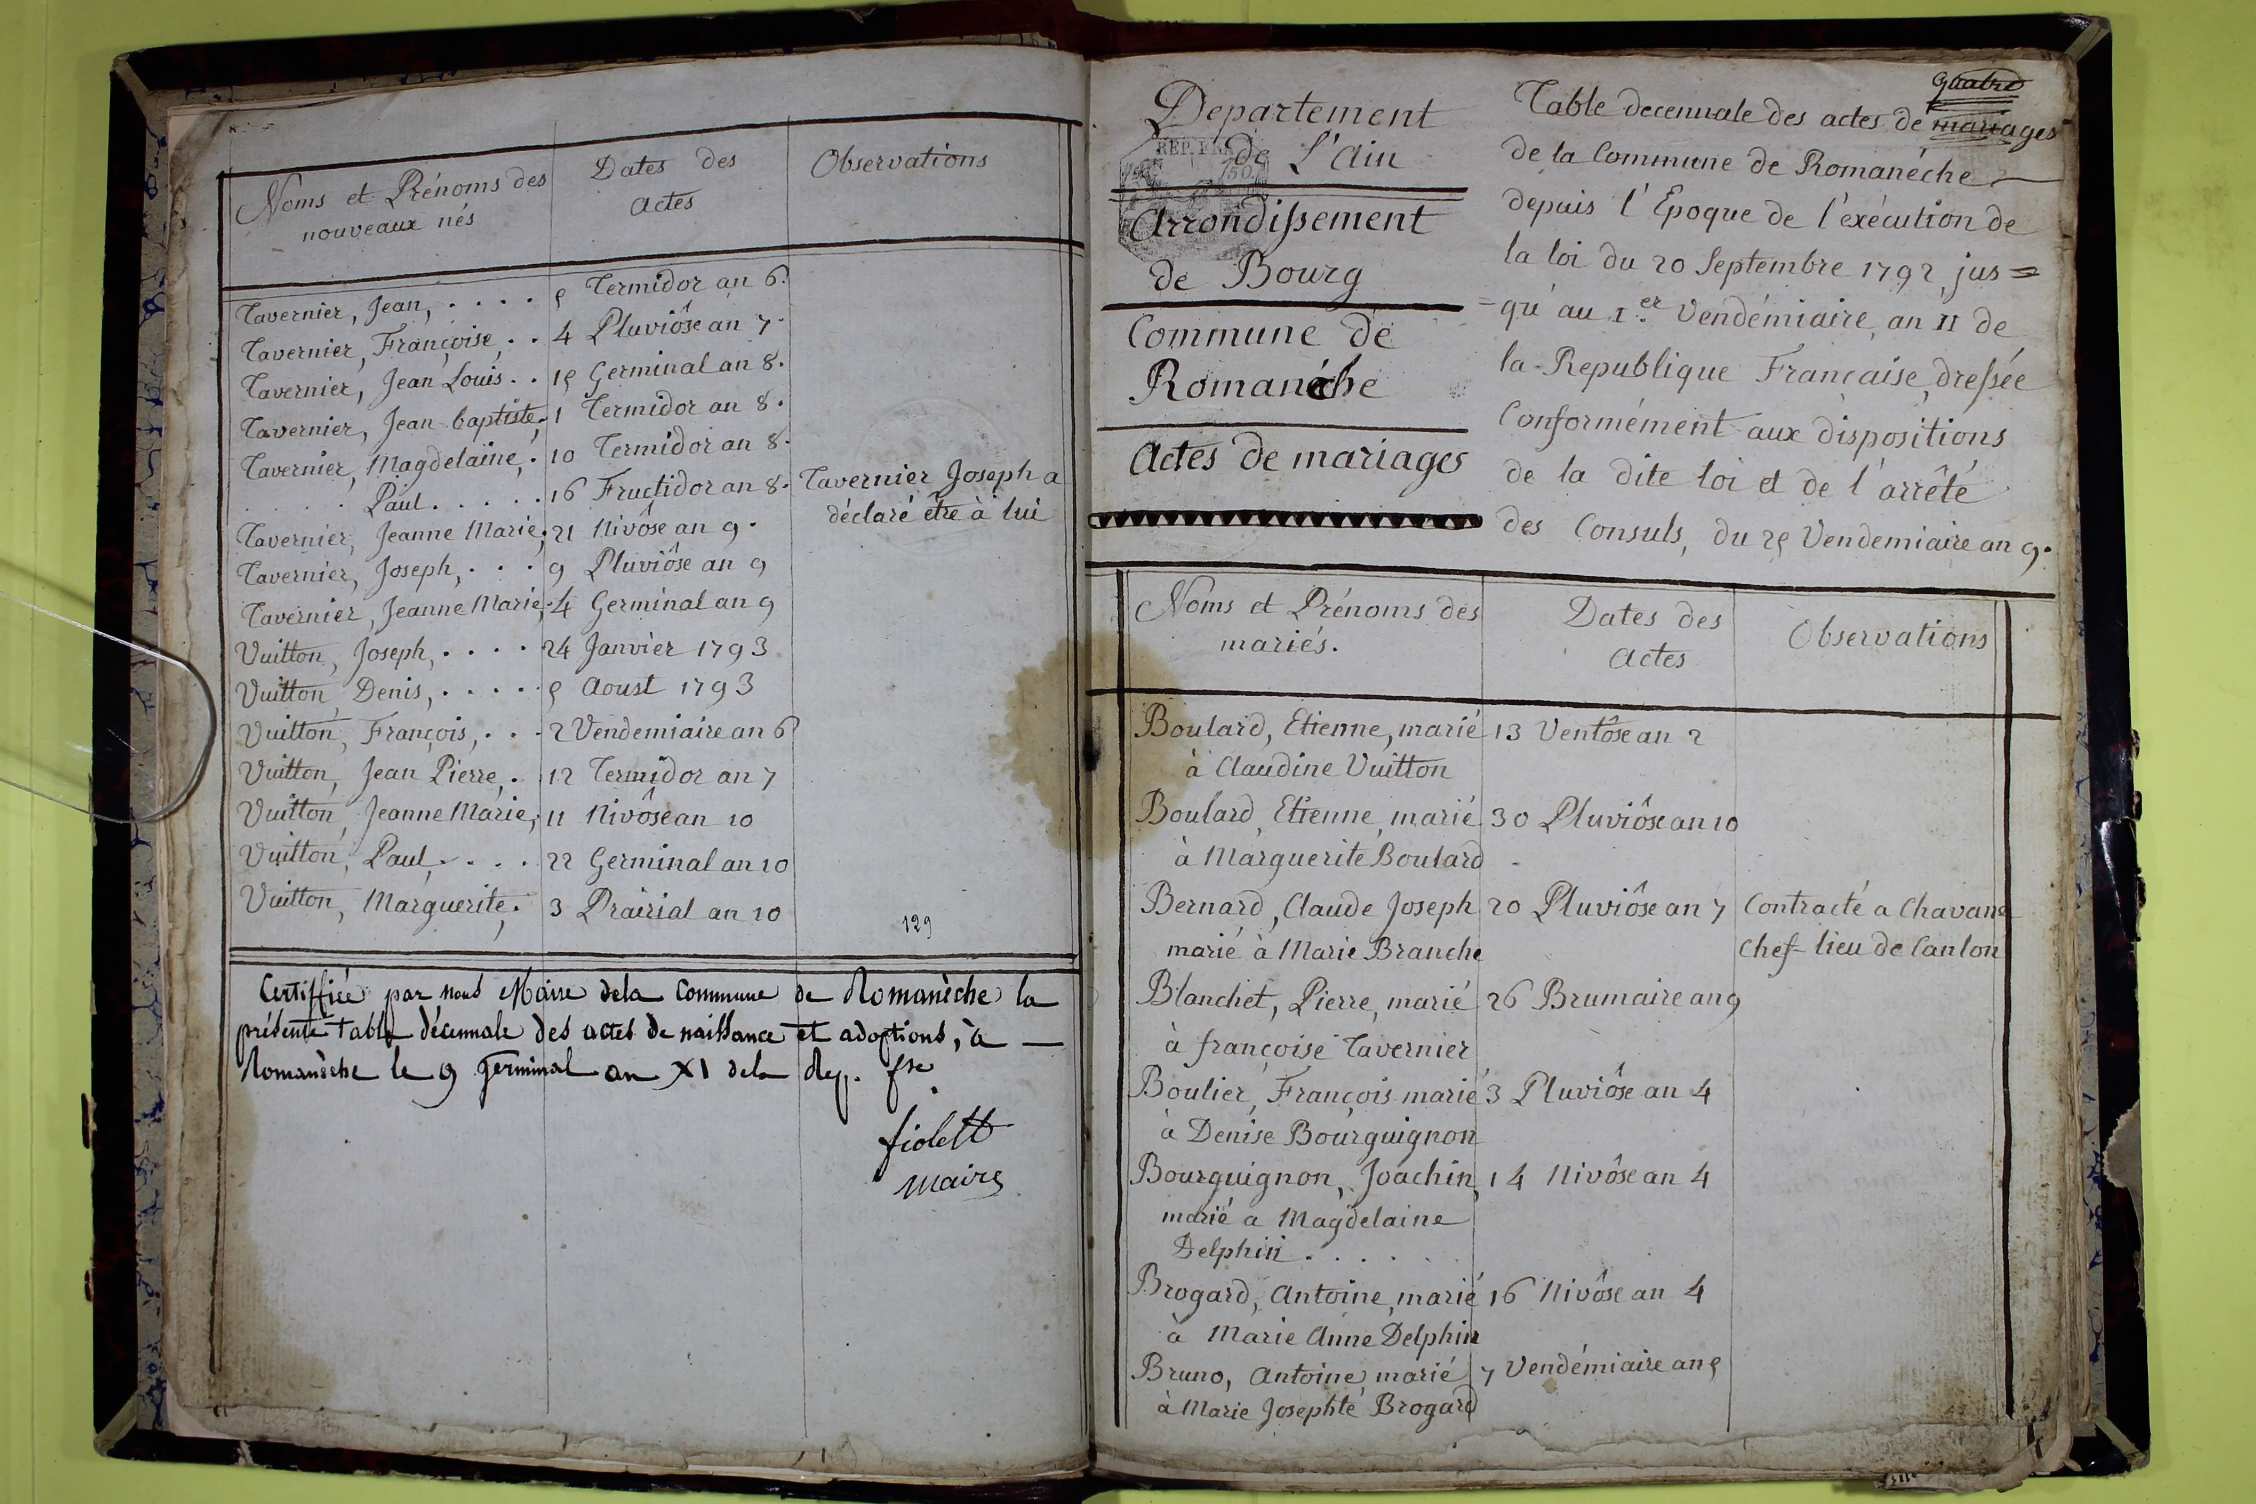 Noms et Prénoms des
nouveaux nés
Dates des
actes
Observations
Tavernier, Jean, . . . . 5 Termidor an 6.
Tavernier, Françoise, . . 4 Pluviôse an 7.
Tavernier, Jean Louis . . 15 Germinal an 8.
Tavernier, Jean baptiste, . 1 Termidor an 8.
Tavernier, Magdelaine, . 10 Termidor an 8.
. . . . . Paul . . . . . 16 Fructidor an 8. Tavernier Joseph a
déclaré être à lui
Tavernier, Jeanne Marie, 21 Nivôse an 9.
Tavernier, Joseph, . . . 9 Pluviôse an 9
Tavernier, Jeanne Marie, 4 Germinal an 9
Vuitton, Joseph, . . . . 24 Janvier 1793
Vuitton, Denis, . . . . . 5 Aoust 1793
Vuitton, François, . . . 2 Vendemiaire an 6
Vuitton, Jean Pierre, . 12 Termidor an 7
Vuitton, Jeanne Marie, 11 Nivôse an 10
Vuitton, Paul, . . . . 22 Germinal an 10
Vuitton, Marguerite, . 3 Prairial an 10
129
Certiffiée par nous Maire dela Commune de Romanèche la
présente table décennale des actes de naissance et adoptions, à —
Romanèche le 9 germinal an XI dela Rep. fse.
fiolett
maire
Departement
de L'Ain
REP. FRA
Arrondissement
de Bourg
Commune de
Romanéche
Actes de mariages
quatre
Table decennale des actes de mariages
de la Commune de Romanéche —
depuis l'Epoque de l'exécution de
la loi du 20 Septembre 1792, jus=
=qu'au 1.er Vendémiaire an 11 de
la Republique Française, dressée
Conformément aux dispositions
de la dite loi et de l'arrêté
des Consuls, du 25 Vendemiaire an 9.
Noms et Prénoms des
mariés.
Dates des
Actes
Observations
Boulard, Etienne, marié 13 Ventôse an 2
à Claudine Vuitton
Boulard, Etienne, marié 30 Pluviôse an 10
à Marguerite Boulard
Bernard, Claude Joseph 20 Pluviôse an 7 Contracté a Chavane
marié à Marie Branche Chef-lieu de Canton
Blanchet, Pierre, marié 26 Brumaire an 9
à françoise Tavernier
Boulier, François marié 3 Pluviôse an 4
à Denise Bourguignon
Bourguignon, Joachin, 14 Nivôse an 4
marié a Magdelaine
Delphin . . . . .
Brogard, Antoine, marié 16 Nivôse an 4
à Marie Anne Delphin
Bruno, Antoine marié 7 Vendémiaire an 5
à Marie Josephte Brogard